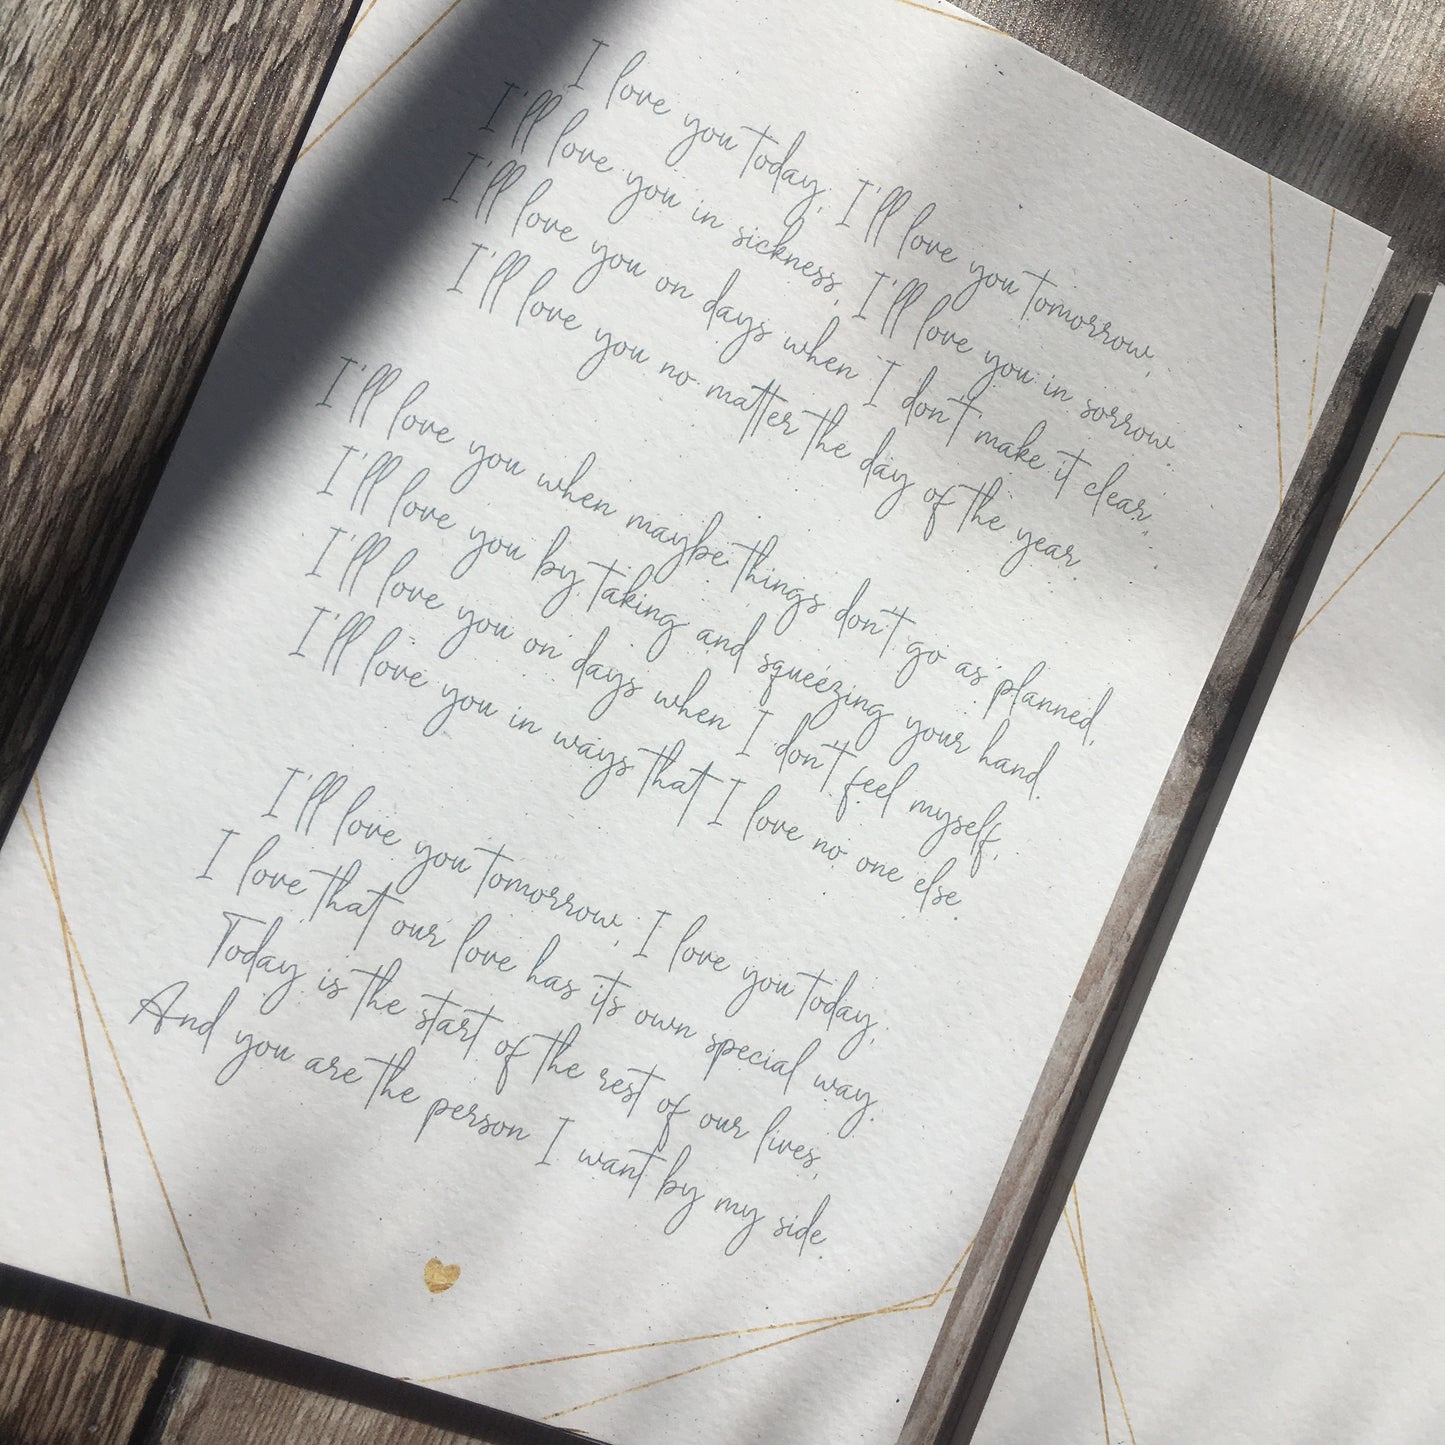 I love you today, I'll love you tomorrow,
I'll love you in sickness, I'll love you in sorrow.
I'll love you on days when I don't make it clear,
I'll love you no matter the day of the year.
I'll love you when maybe things don't go as planned,
I'll love you by taking and squeezing your hand.
I'll love you on days when I don't feel myself,
I'll love you in ways that I love no one else.
I'll love you tomorrow, I love you today,
I love that our love has its own special way.
Today is the start of the rest of our lives,
And you are the person I want by my side.